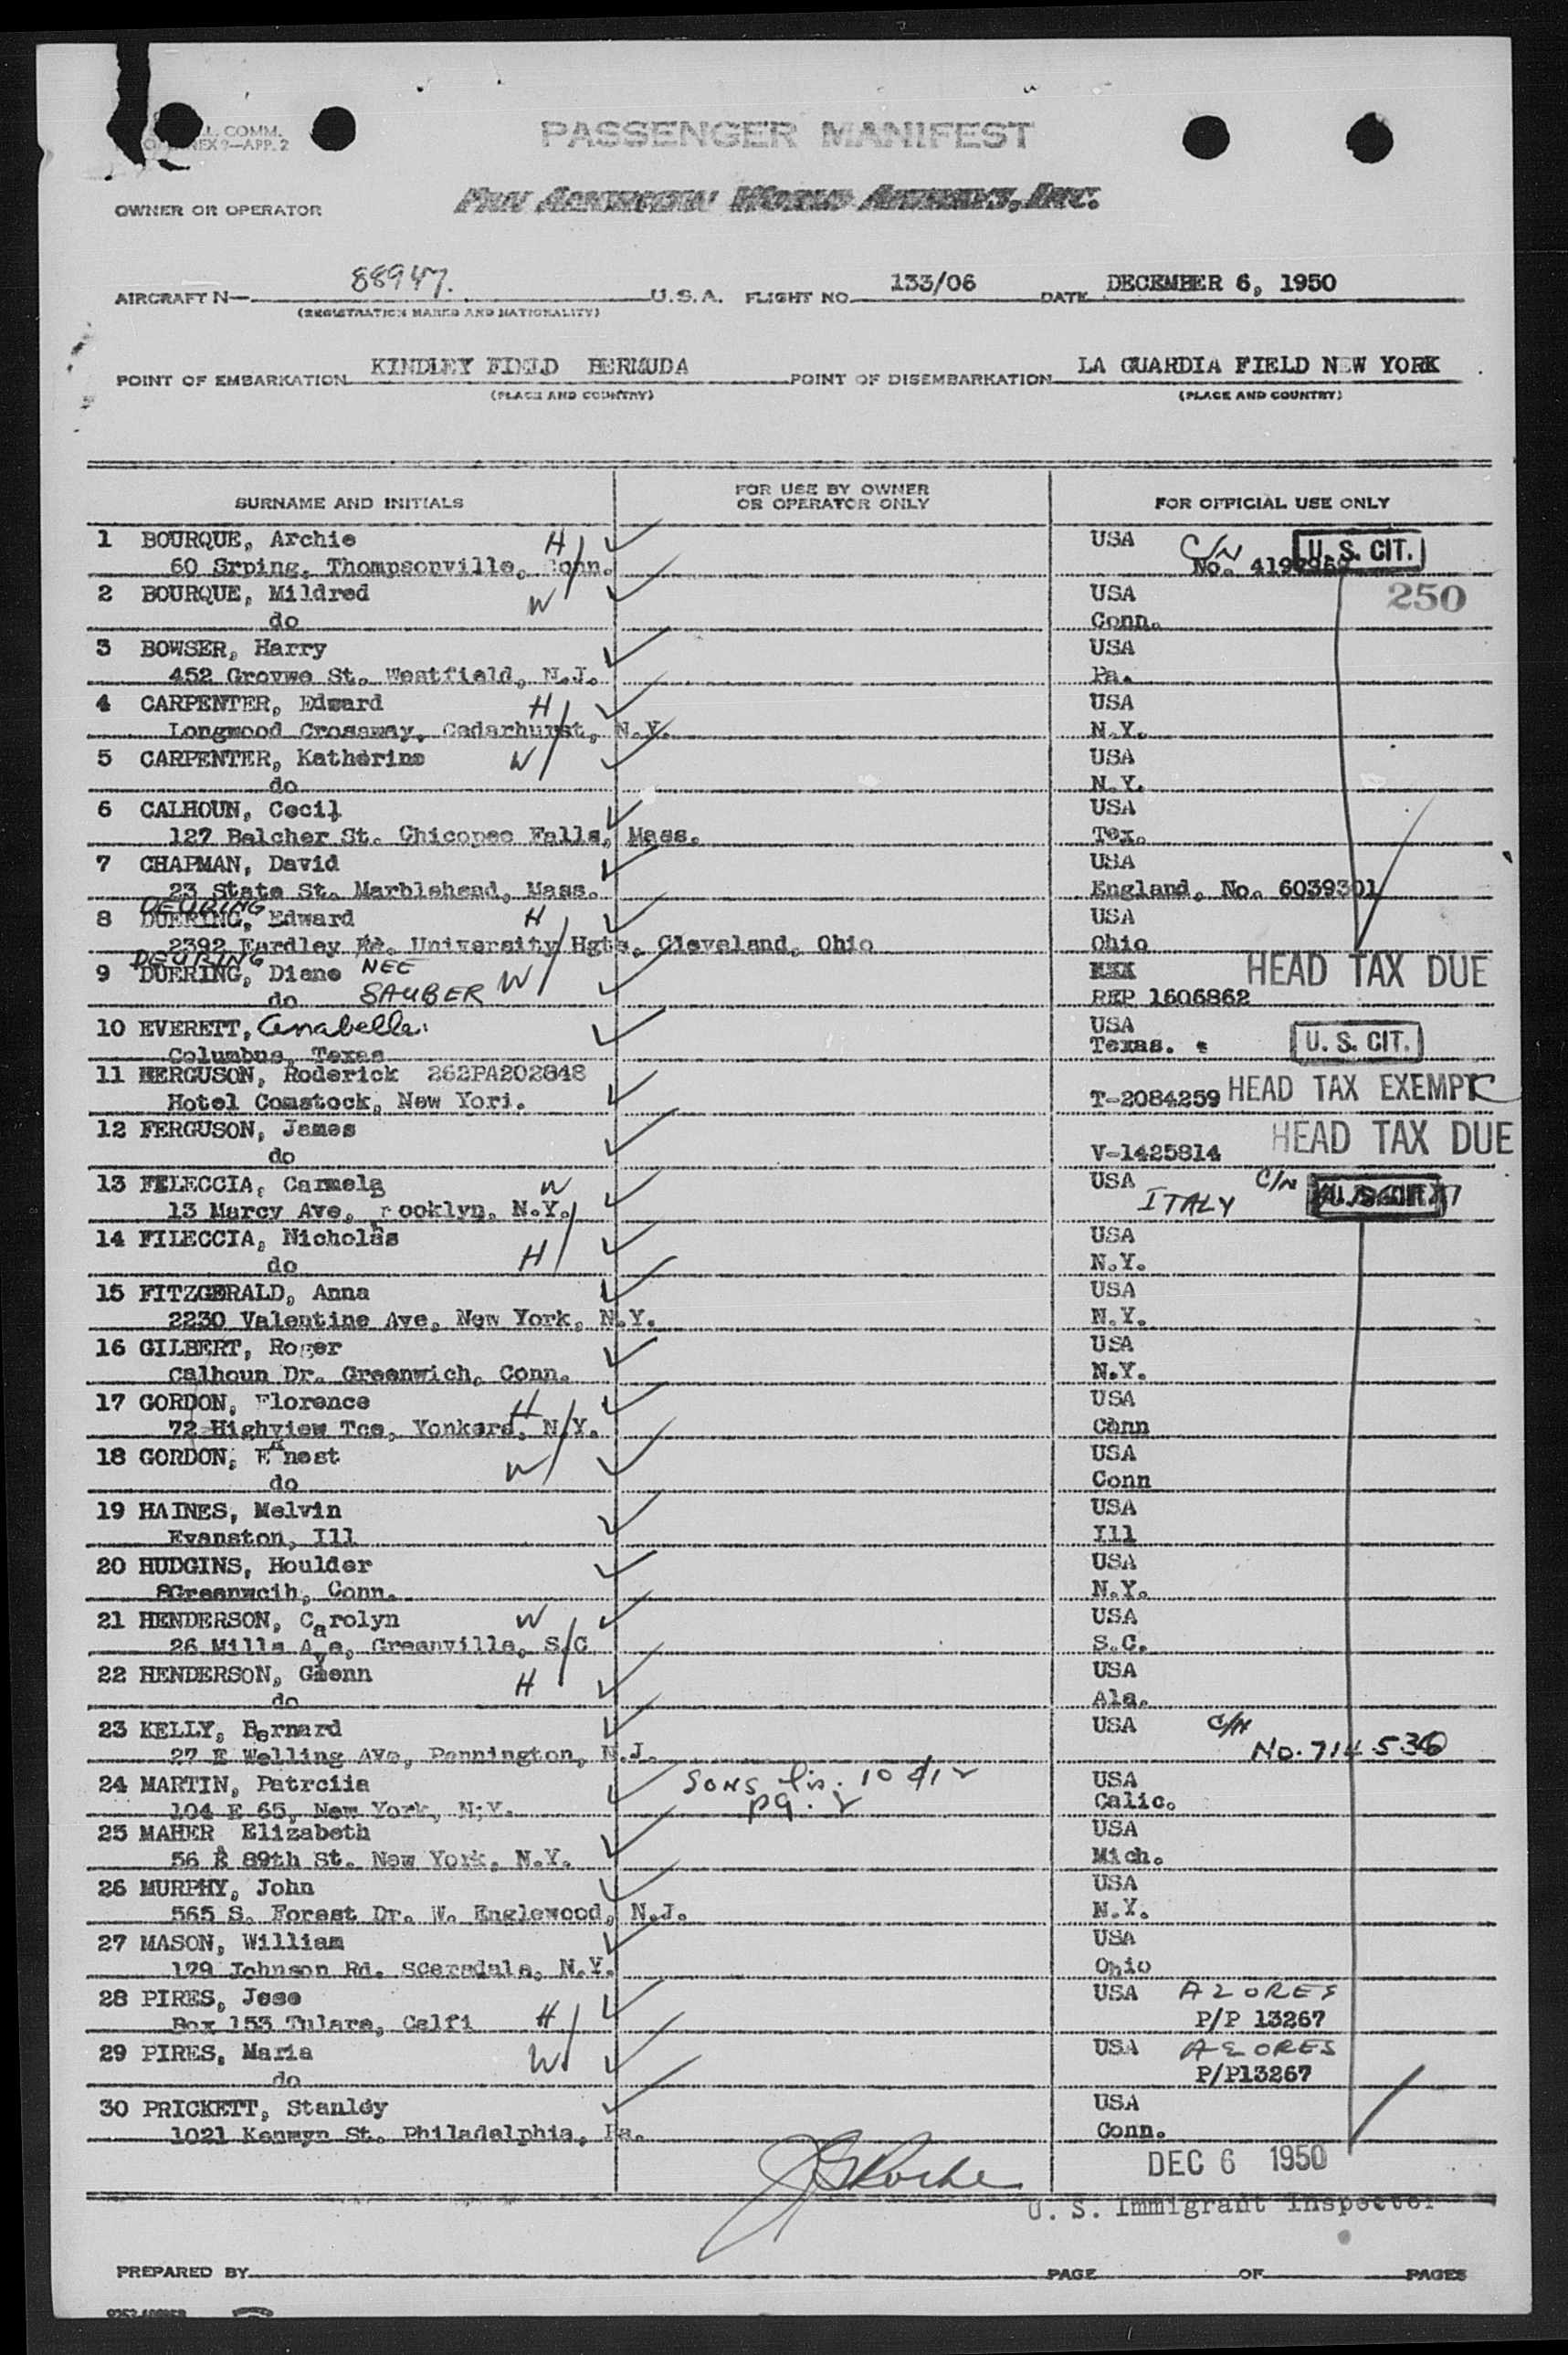 L. COMM.
NEX 9—APP. 2
PASSENGER MANIFEST
OWNER OR OPERATOR PAN AMERICAN WORLD AIRWAYS, INC.
AIRCRAFT N— 88947. U.S.A. FLIGHT NO. 133/06 DATE DECEMBER 6, 1950
(REGISTRATION MARKS AND NATIONALITY)
POINT OF EMBARKATION KINDLEY FIELD BERMUDA POINT OF DISEMBARKATION LA GUARDIA FIELD N W YORK
(PLACE AND COUNTRY) (PLACE AND COUNTRY)
SURNAME AND INITIALS FOR USE BY OWNER OR OPERATOR ONLY FOR OFFICIAL USE ONLY
1 BOURQUE, Archie H USA C/N U.S. CIT.
60 Srping, Thompsonville, Conn. No.
2 BOURQUE, Mildred W USA 250
do Conn.
3 BOWSER, Harry USA
452 Grovwe St. Westfield, N.J. Pa.
4 CARPENTER, Edward H USA
Longwood Crossway, Cedarhurst, N.Y. N.Y.
5 CARPENTER, Katherine W USA
do N.Y.
6 CALHOUN, Cecil USA
127 Belcher St. Chicopee Falls, Mass. Tex.
7 CHAPMAN, David USA
23 State St. Marblehead, Mass. England, No. 6039301
DEURING
8 DUERING, Edward H USA
2392 Eardley Rd. University Hgts, Cleveland, Ohio Ohio
DEURING
9 DUERING, Diane NEE W HEAD TAX DUE
do SAUBER REP 1606862
10 EVERETT, Anabelle USA
Columbus, Texas Texas. U.S. CIT.
11 FERGUSON, Roderick 262PA202848
Hotel Comstock, New Yori. T-2084259 HEAD TAX EXEMPT C
12 FERGUSON, James HEAD TAX DUE
do V-1425814
13 FILECCIA, Carmela W USA C/N
13 Marcy Ave, rooklyn, N.Y. ITALY
14 FILECCIA, Nicholas H USA
do N.Y.
15 FITZGERALD, Anna USA
2230 Valentine Ave, New York, N.Y. N.Y.
16 GILBERT, Roger USA
Calhoun Dr. Greenwich, Conn. N.Y.
17 GORDON, Florence H USA
72 Highview Tce, Yonkers, N.Y. Conn
18 GORDON, Ernest W USA
do Conn
19 HAINES, Melvin USA
Evanston, Ill Ill
20 HUDGINS, Houlder USA
Greenwcih, Conn. N.Y.
21 HENDERSON, Carolyn W USA
26 Mills Ave, Greenville, S.C S.C.
22 HENDERSON, Glenn H USA
do Ala.
23 KELLY, Bernard USA C/N
27 E Welling AVe, Pennington, N.J. No. 714536
24 MARTIN, Patrciia SONS lin. 10 & 12 USA
104 E 65, New York, N;Y. pg. 2 Calic.
25 MAHER Elizabeth USA
56 E 89th St. New York, N.Y. Mich.
26 MURPHY, John USA
565 S. Forest Dr. W. Englewood, N.J. N.Y.
27 MASON, William USA
179 Johnson Rd. Scarsdale, N.Y. Ohio
28 PIRES, Jose H USA AZORES
Box 153 Tulare, Calfi P/P 13267
29 PIRES, Maria W USA AZORES
do P/P13267
30 PRICKETT, Stanldy USA
1021 Kenwyn St. Philadelphia, Pa. Conn.
DEC 6 1950
U. S. Immigrant Inspector
PREPARED BY PAGE OF PAGES